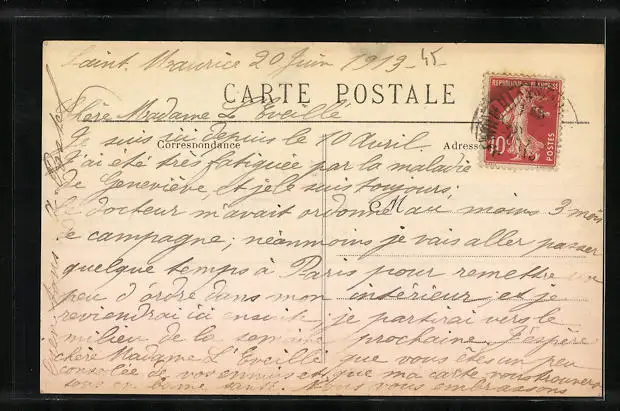 Saint-Maurice 20 Juin 1913-
45
CARTE POSTALE
Chère Madame L'Eveillé
Je suis ici depuis le 10 Avril.
Correspondance
Adresse
J'ai été très fatiguée par la maladie
de Geneviève, et je le suis toujours;
le docteur m'avait ordonné au moins 3 mois
M
de campagne; néanmoins je vais aller passer
quelque temps à Paris pour remettre un
peu d'ordre dans mon intérieur, et je
reviendrai ici ensuite. je partirai vers le
milieu de la semaine prochaine. J'espère
chère Madame L'Eveillé que vous êtes un peu
consolée de vos ennuis et que ma carte vous trouvera
tous en bonne santé. Nous vous embrassons
REPUBLIQUE FRANÇAISE
10
POSTES